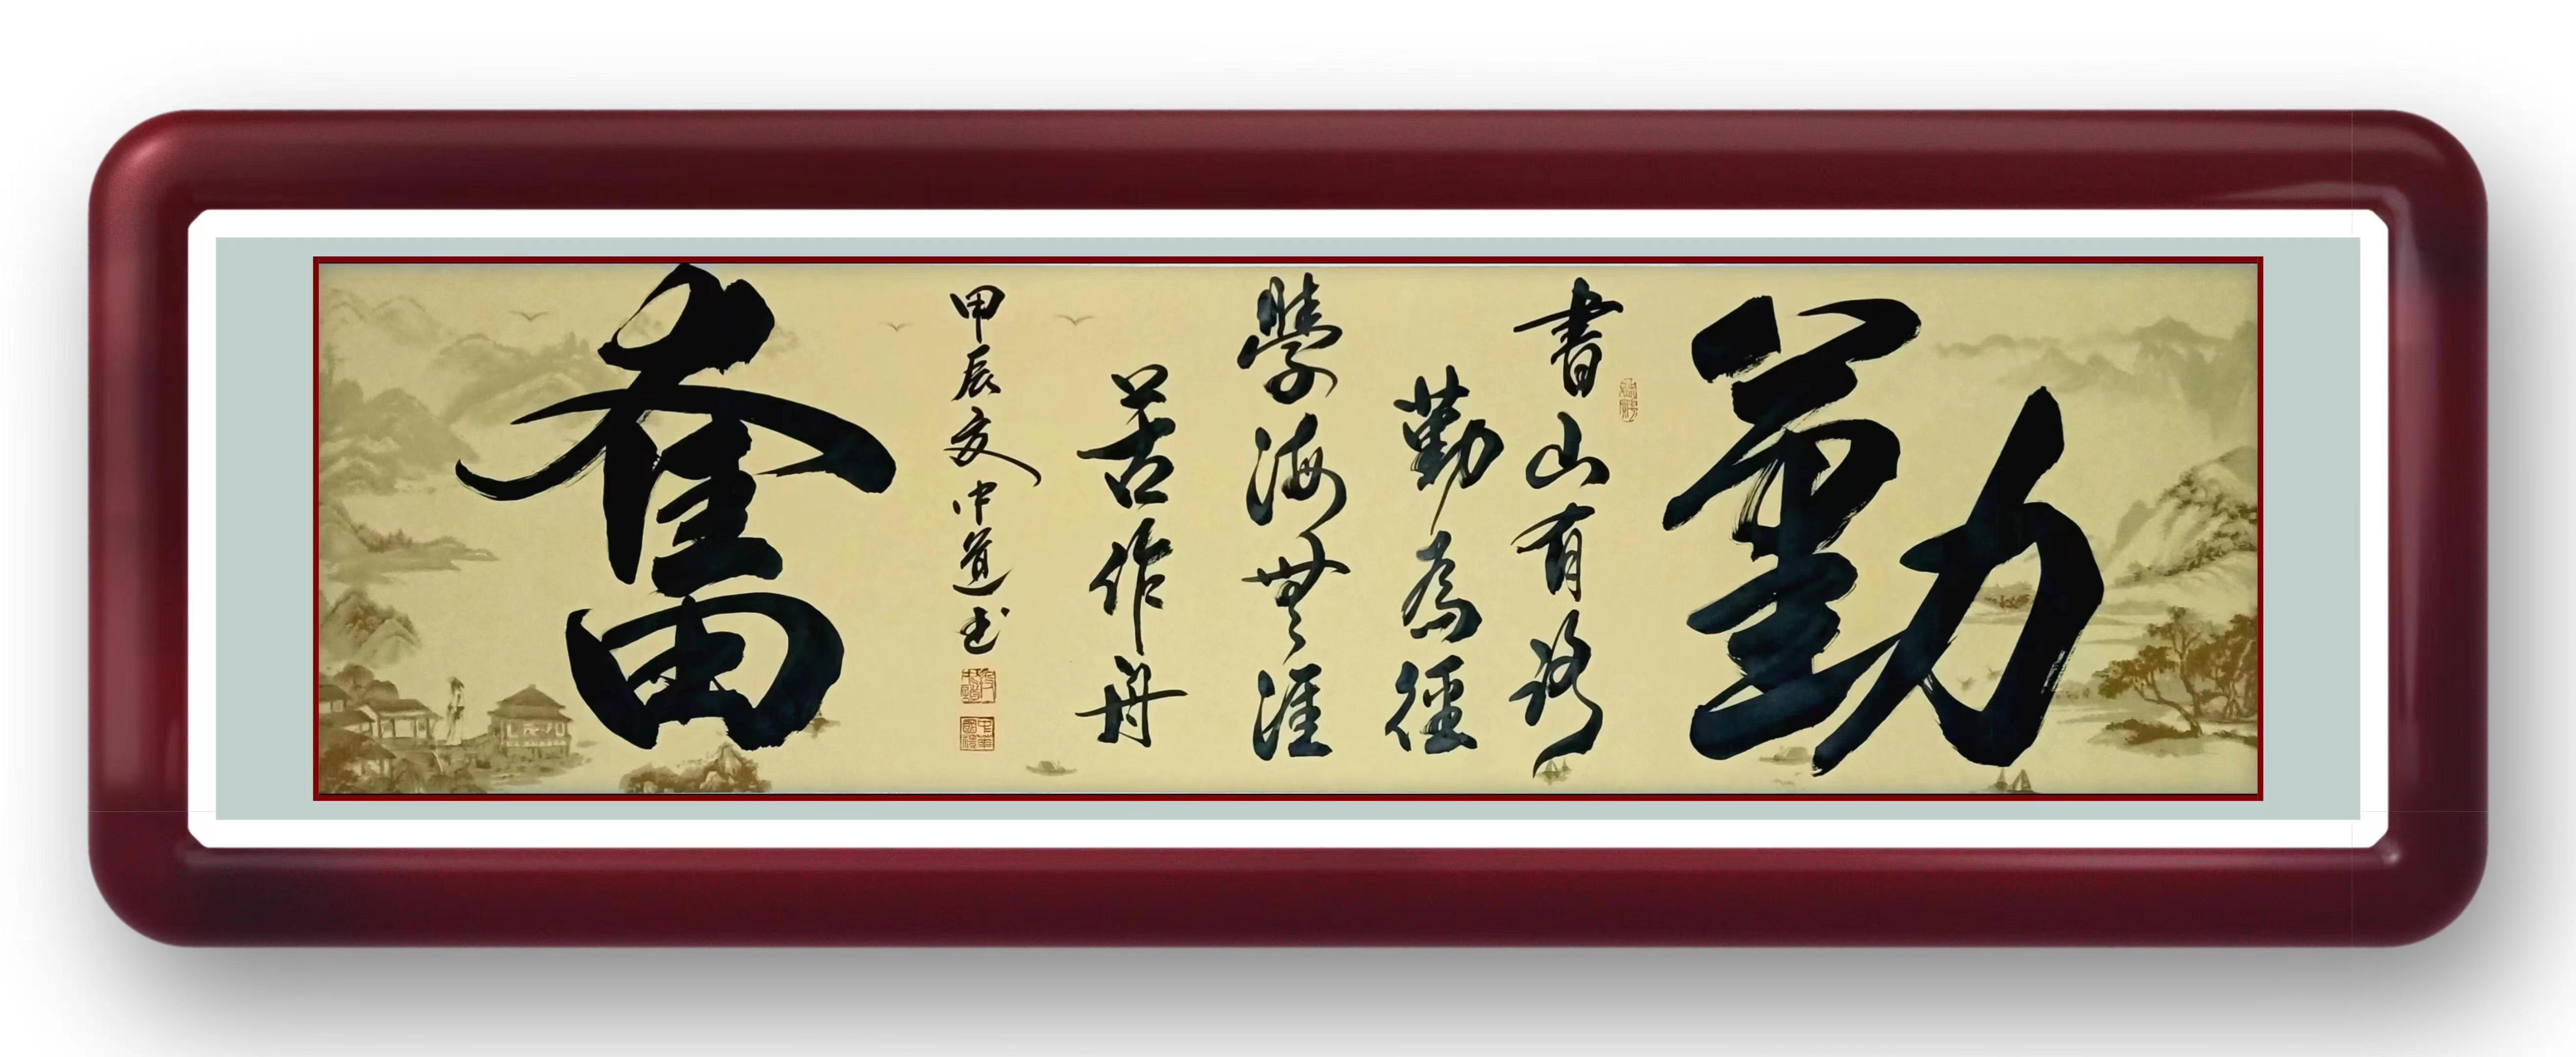 勤
書山有路
勤為徑
學海無涯
苦作舟
甲辰夏中道書
奮